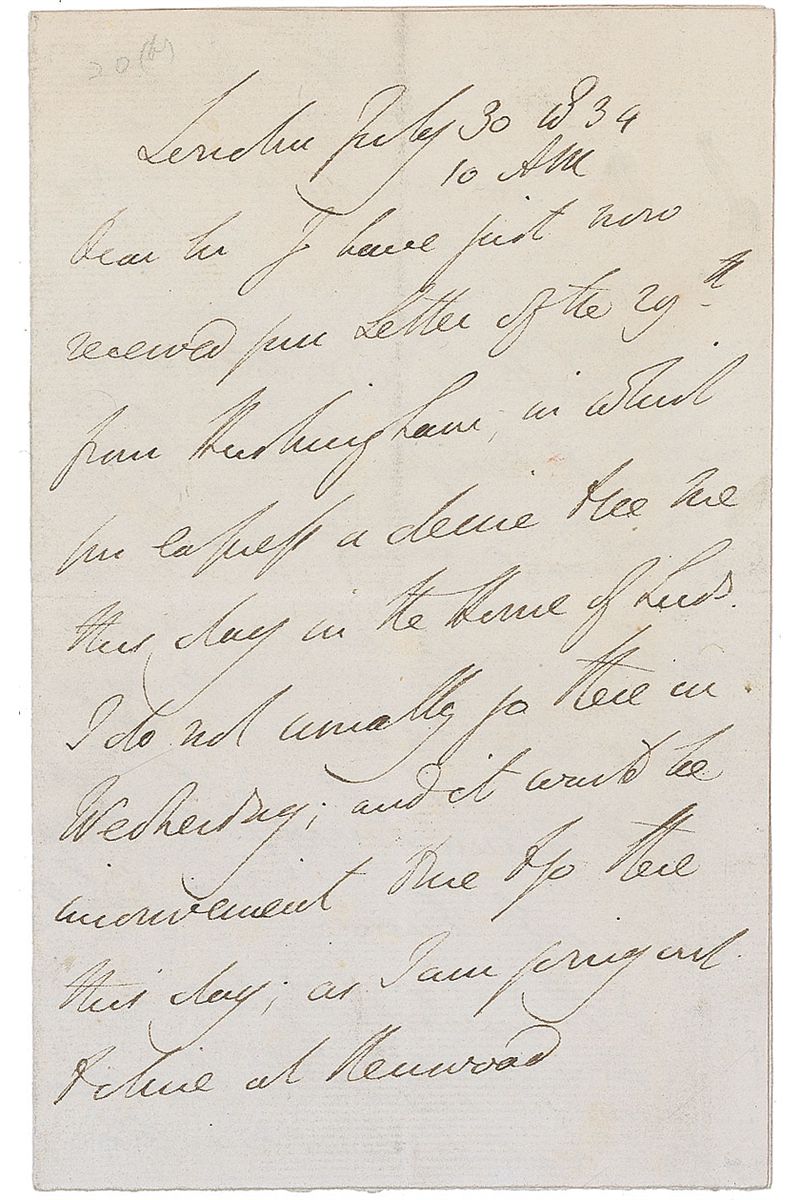 20(6)
London July 30 1834
10 AM
Dear Sir I have just now
received your Letter of the 29th
from Hushingham, in which
you express a desire to see me
this day in the House of Lords.
I do not usually go there on
Wednesday; and it would be
inconvenient to me to go there
this day; as I am going out
to dine at Kenwood